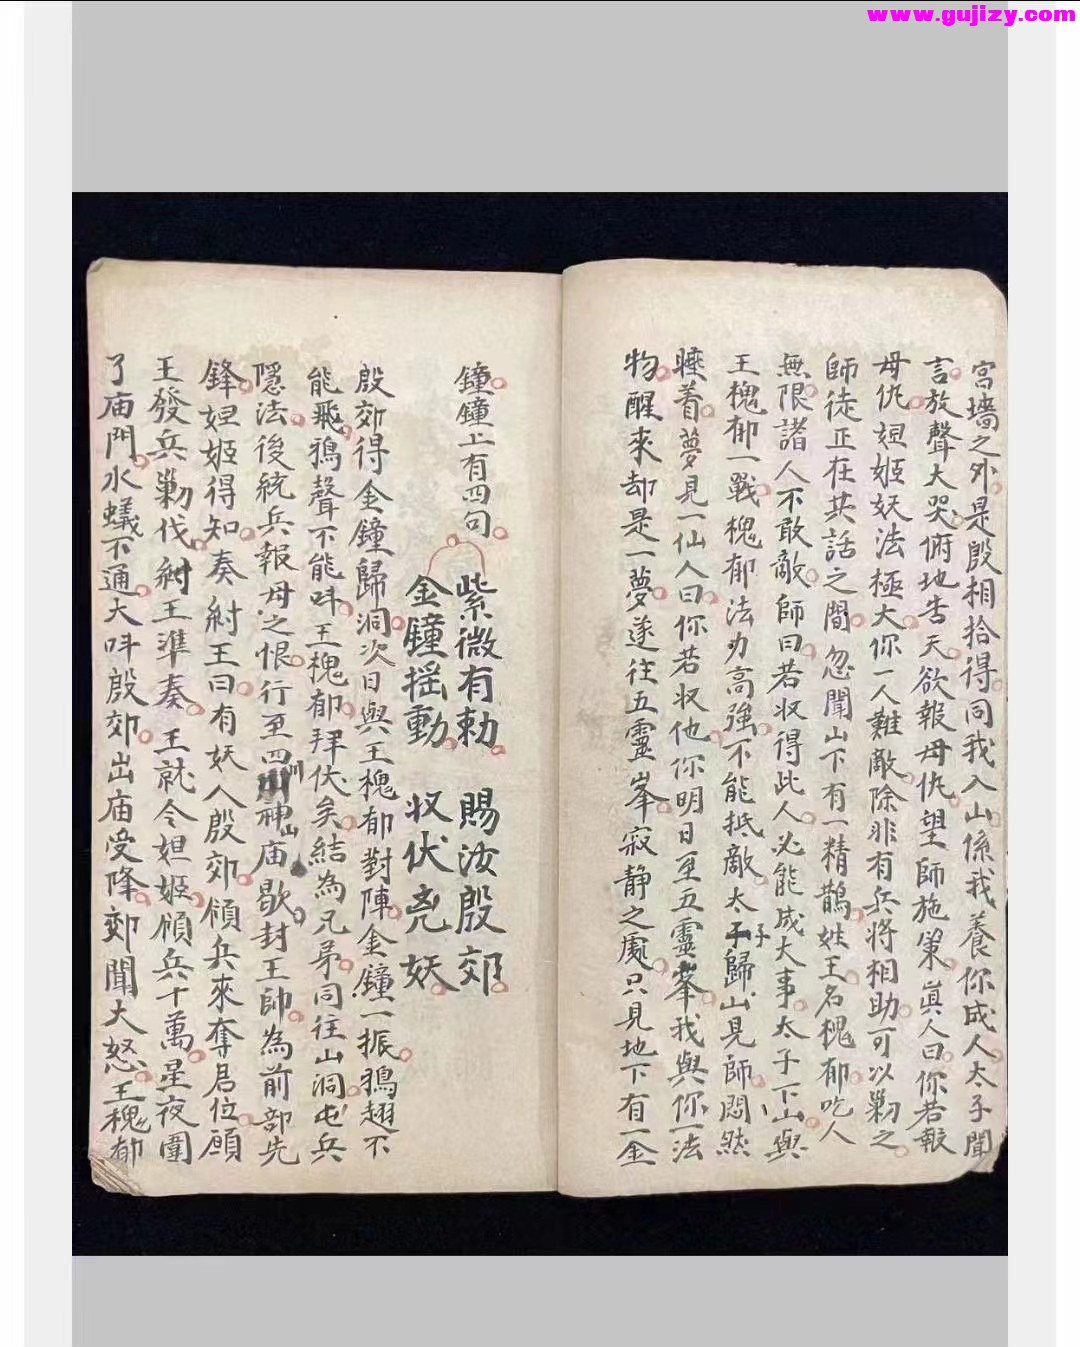 www.gujizy.com
宮墻之外是殷相拾得同我入山係我養你成人太子聞
言放聲大哭俯地告天欲報母仇望師施策眞人曰你若報
母仇妲姬妖法極大你一人難敵除非有兵將相助可以剿之
師徒正在共話之間忽聞山下有一精鵲姓王名槐郁吃人
無限諸人不敢敵師曰若収得此人必能成大事太子下山與
王槐郁一戰槐郁法力高強不能抵敵太子歸山見師悶然
睡着夢見一仙人曰你若収他你明日至五靈峯我與你一法
物醒來却是一夢遂往五靈峯寂静之處只見地下有一金
鐘鐘上有四句
紫微有勅 賜汝殷郊
金鐘摇動 収伏尭妖
殷郊得金鐘歸洞次日與王槐郁對陣金鐘一振鴉翅不
能飛鴉聲不能呌王槐郁拜伏矣結為兄弟同往山洞屯兵
隱法後統兵報母之恨行至四川神山庙歇封王帥為前部先
鋒妲姬得知奏紂王曰有妖人殷郊領兵來奪君位願
王發兵剿伐紂王準奏王就令妲姬領兵十萬星夜圍
了庙門水蟻不通大呌殷郊出庙受降郊聞大怒王槐郁